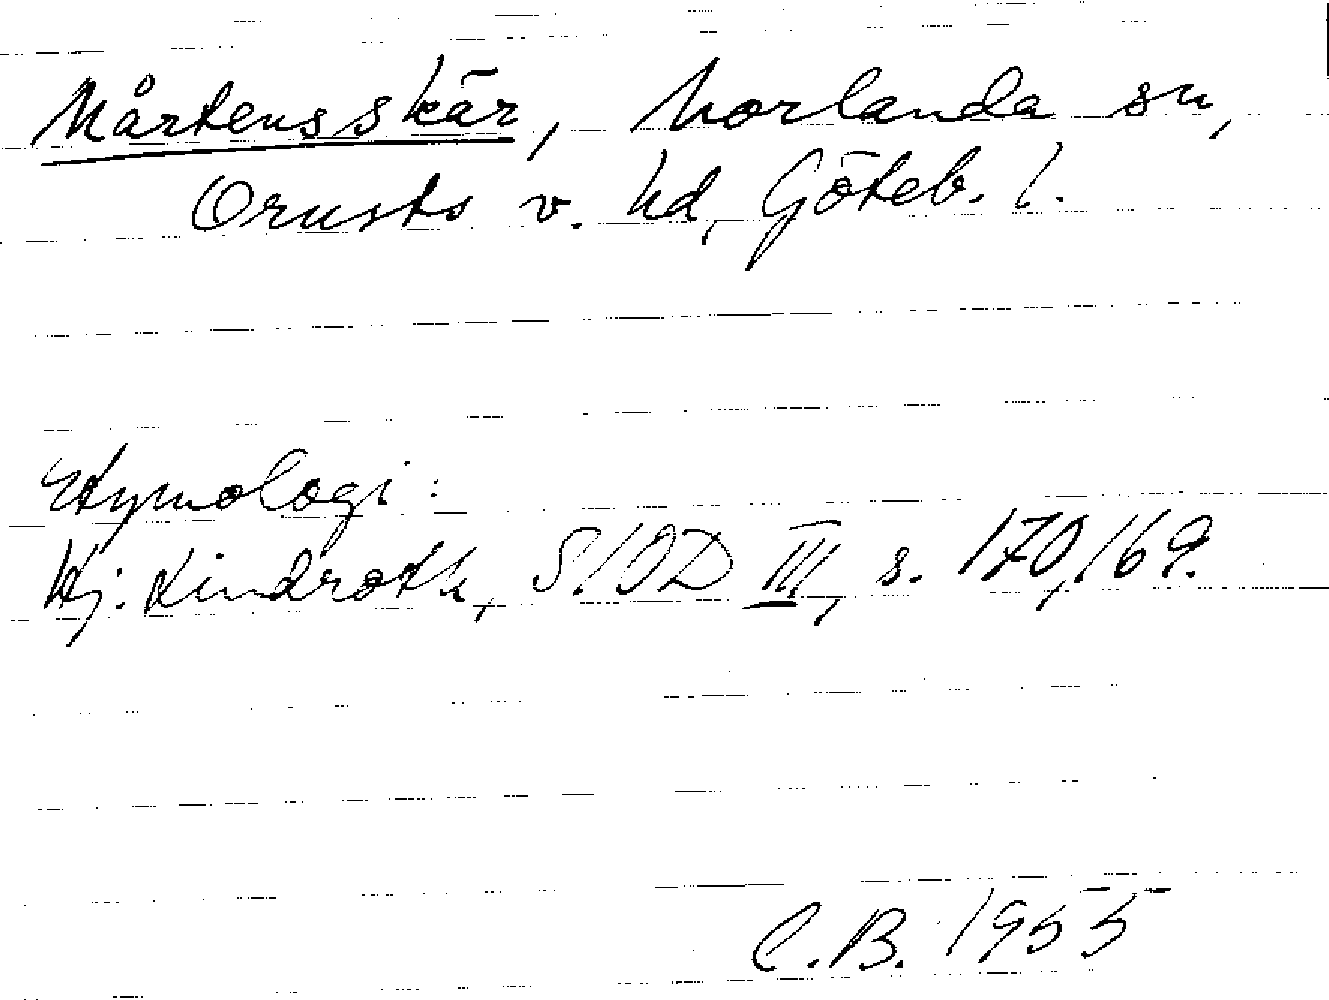 Mårtensskär, Morlanda sn,
Orusts v. hd, Göteb. l.
Etymologi:
Hj. Lindroth, SIOD III, s. 170, 169.
C.B. 1955